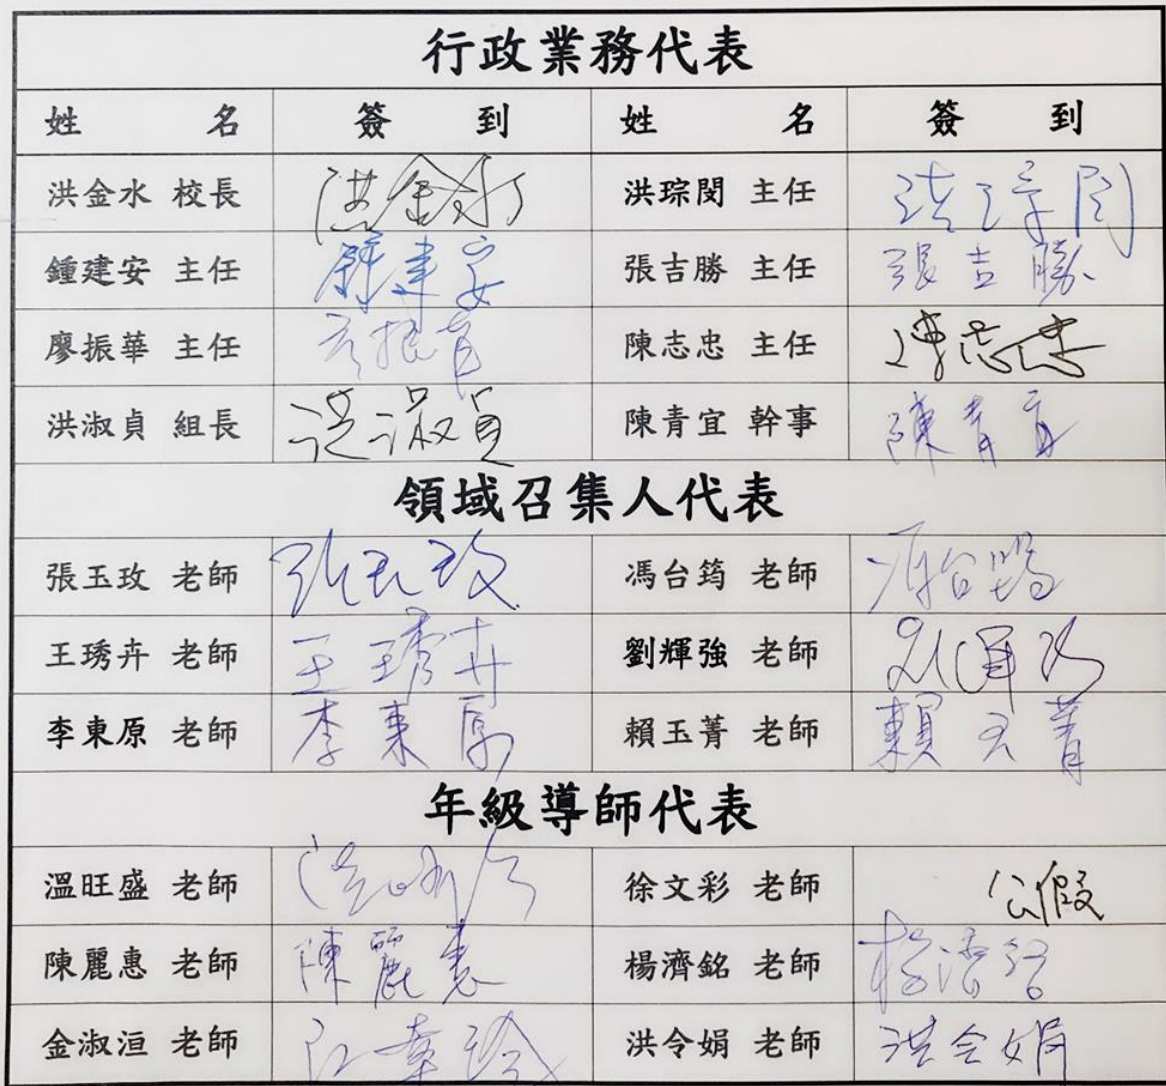 行政業務代表
姓名 簽到 姓名 簽到
洪金水 校長 洪金水 洪琮閔 主任 洪琮閔
鍾建安 主任 鍾建安 張吉勝 主任 張吉勝
廖振華 主任 陳志忠 主任 陳志忠
洪淑貞 組長 洪淑貞 陳青宜 幹事 陳青宜
領域召集人代表
張玉玫 老師 張玉玫 馮台筠 老師 馮台筠
王琇卉 老師 王琇卉 劉輝強 老師
李東原 老師 李東原 賴玉菁 老師 賴玉菁
年級導師代表
溫旺盛 老師 徐文彩 老師 公假
陳麗惠 老師 陳麗惠 楊濟銘 老師 楊濟銘
金淑洹 老師 洪令娟 老師 洪令娟